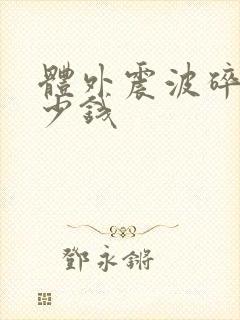 體外震波碎
少錢
鄧永鏘